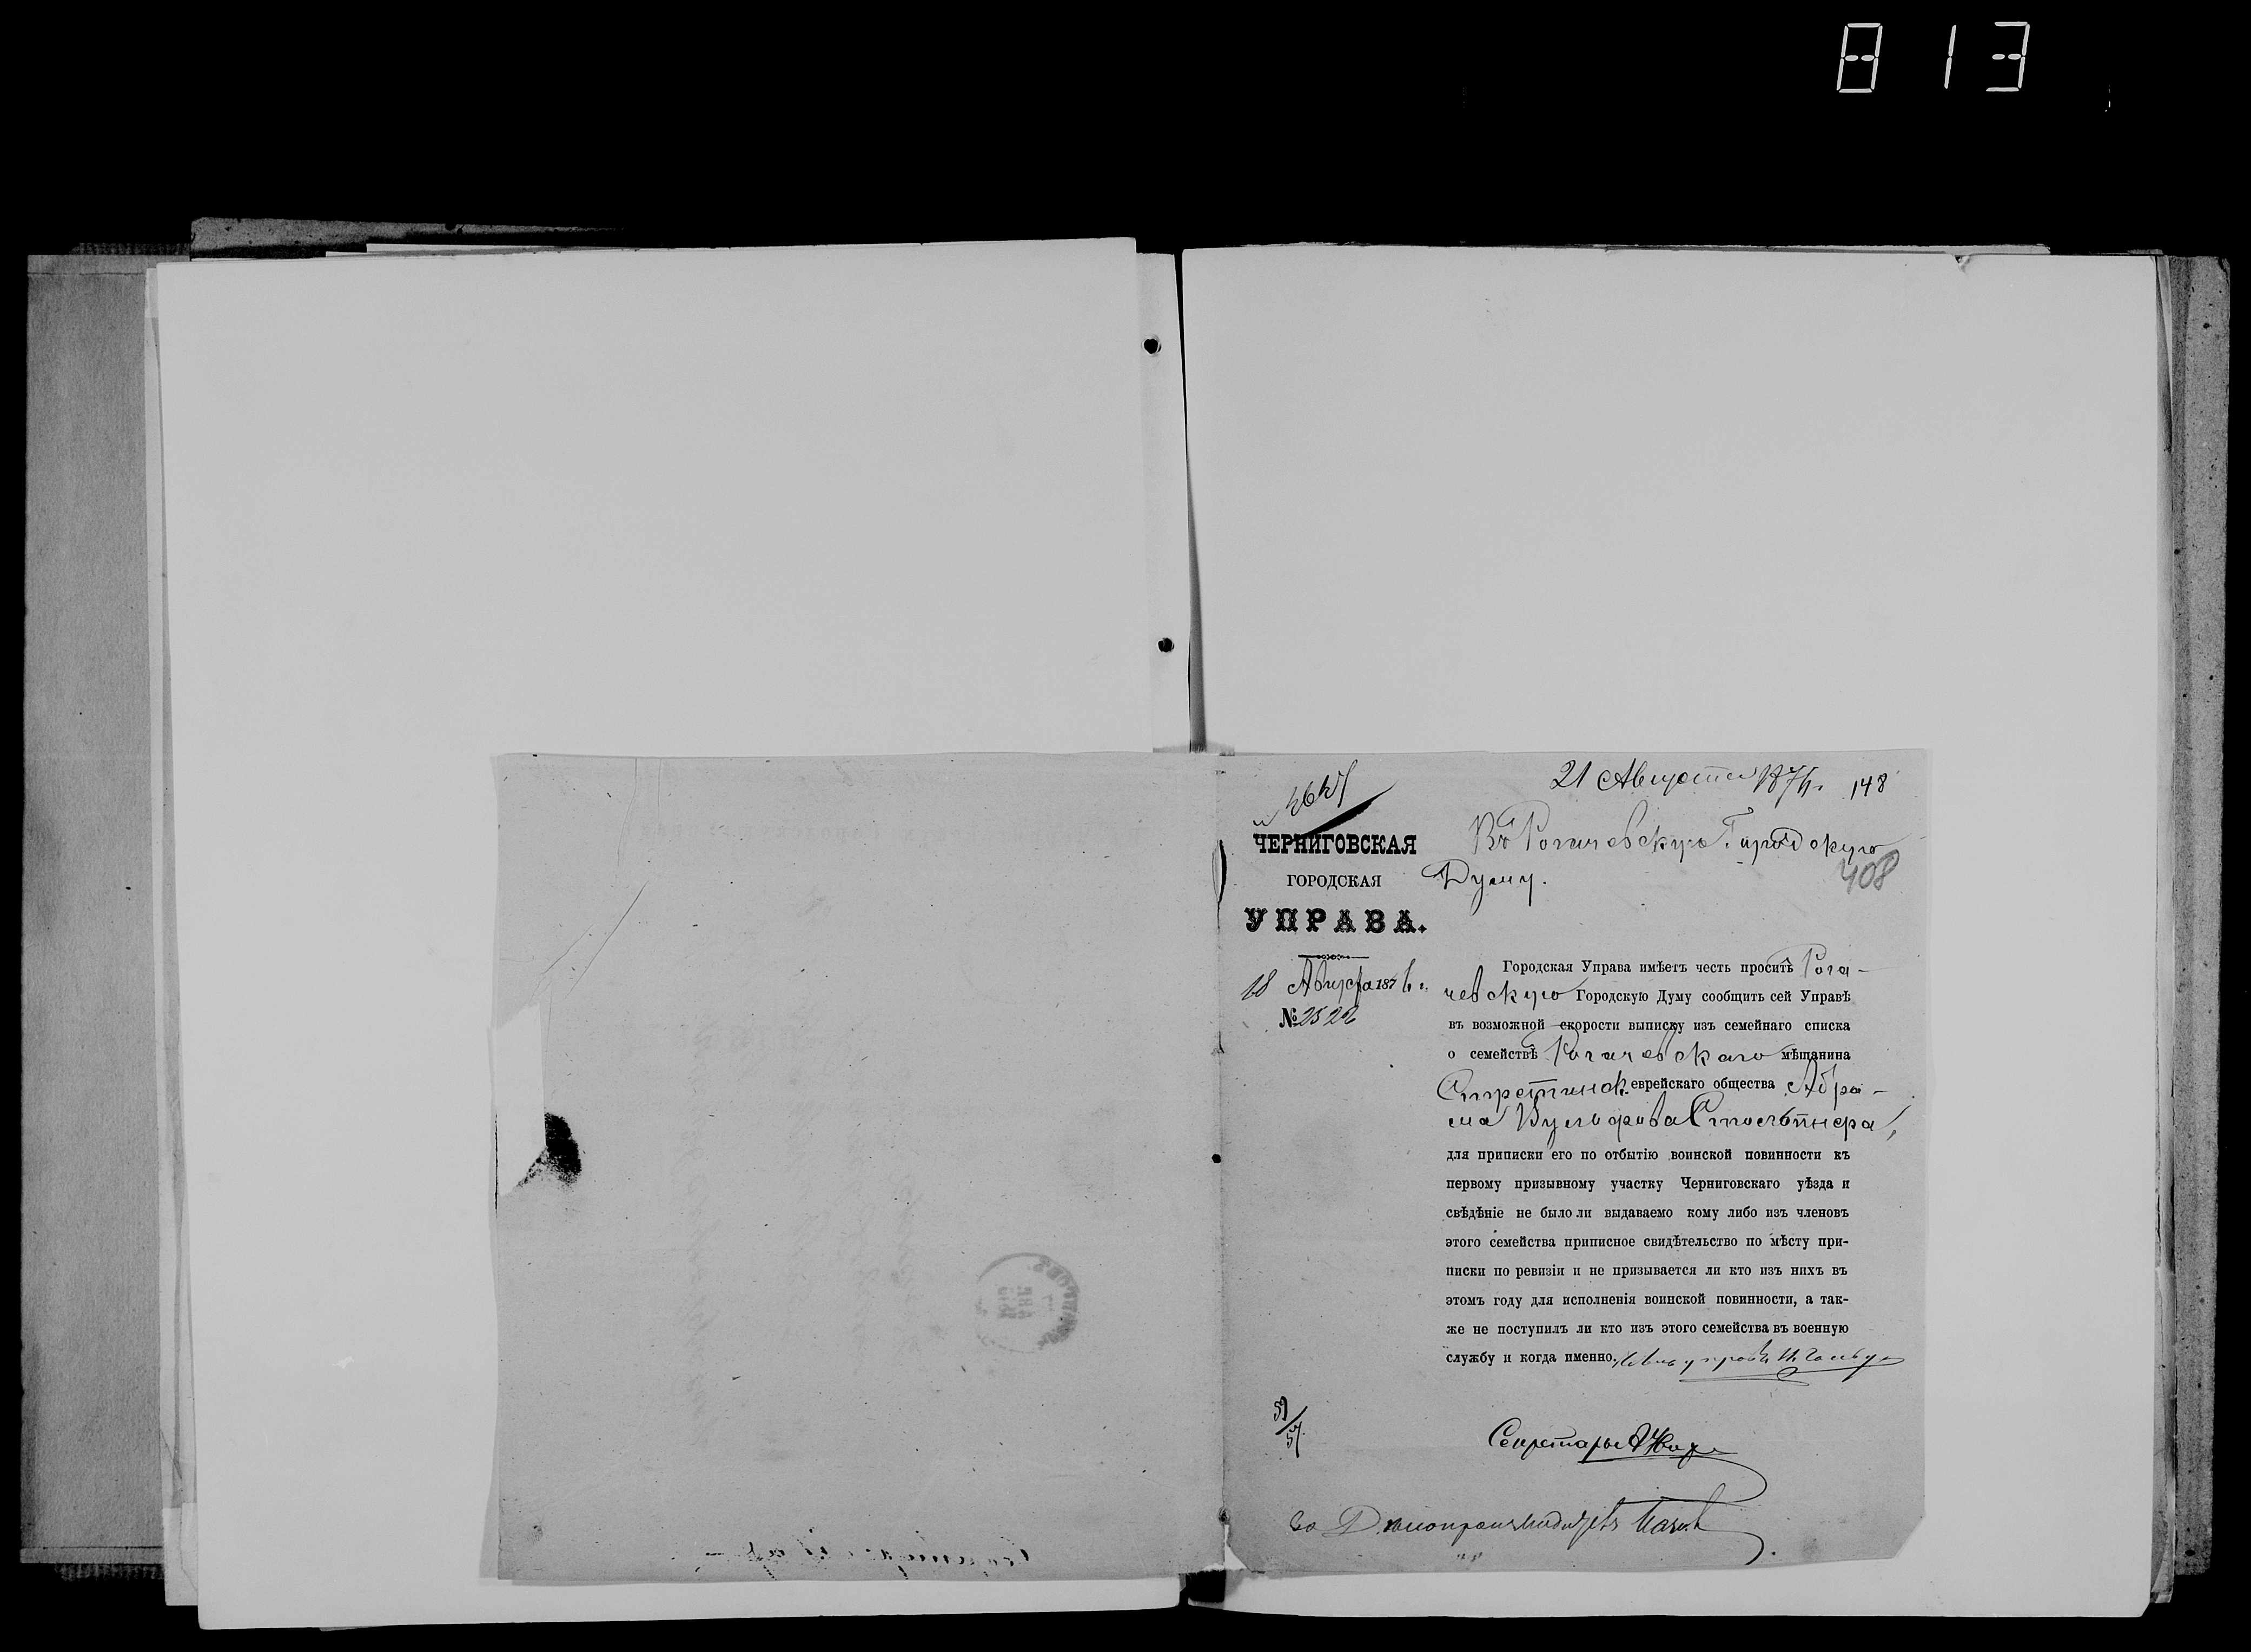 813
21 Августа 1876 г. 148
ЧЕРНИГОВСКАЯ
ГОРОДСКАЯ
УПРАВА.
18 Августа 1876 г.
№ 2522
Въ Рогачевскую Городскую
Думу.
408
Городская Управа имѣетъ честь проситъ Рога-
чевскую Городскую Думу сообщить сей Управѣ
въ возможной скорости выписку изъ семейнаго списка
о семействѣ Рогачевскаго мѣщанина
еврейскаго общества Абра-
ма Вульфова
для приписки его по отбытію воинской повинности къ
первому призывному участку Черниговскаго уѣзда и
свѣдѣніе не было ли выдаваемо кому либо изъ членовъ
этого семейства приписное свидѣтельство по мѣсту при-
писки по ревизіи и не призывается ли кто изъ нихъ въ
этомъ году для исполненія воинской повинности, а так-
же не поступилъ ли кто изъ этого семейства въ военную
службу и когда именно.
59/57
Секретарь
За Дѣлопроизводителя